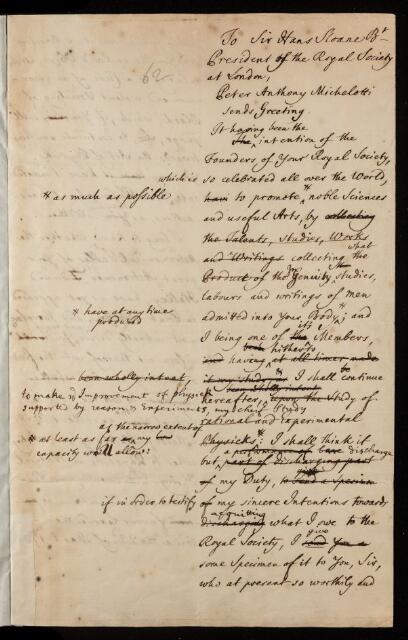 62
To Sir Hans Sloane Bt
President of the Royal Society
at London,
Peter Anthony Michelotti
sends Greeting.
It having been the
intention of the
Founders of Your Royal Society,
which is
so celebrated all over the World,
# as much as possible
to promote # noble Sciences
and useful Arts, by collecting
the Talents, Studies, Works
what
and Writings collecting the
Product of the Genius, studies,
labours and writings of men
* have at any time
produced
admitted into Your Body; and
its
I being one of the Members,
hitherto
and having at all times made
been wholly intent
it my Studies I shall continue
be
to make ye Improvement of physick
hereafter, upon the Study of
supported by reason & Experiments, my chief Study
rational and experimental
as the narrow extent of
Physick: # I shall think it
# at least as far as my
capacity will allow:
discharge
but part of discharging part
of my Duty, to send a Specimen
if in order to testify
of my sincere Intentions towards
acquitting
discharging what I owe to the
give
Royal Society, I send You a
some Specimen of it to You, Sir,
who at present so worthily and